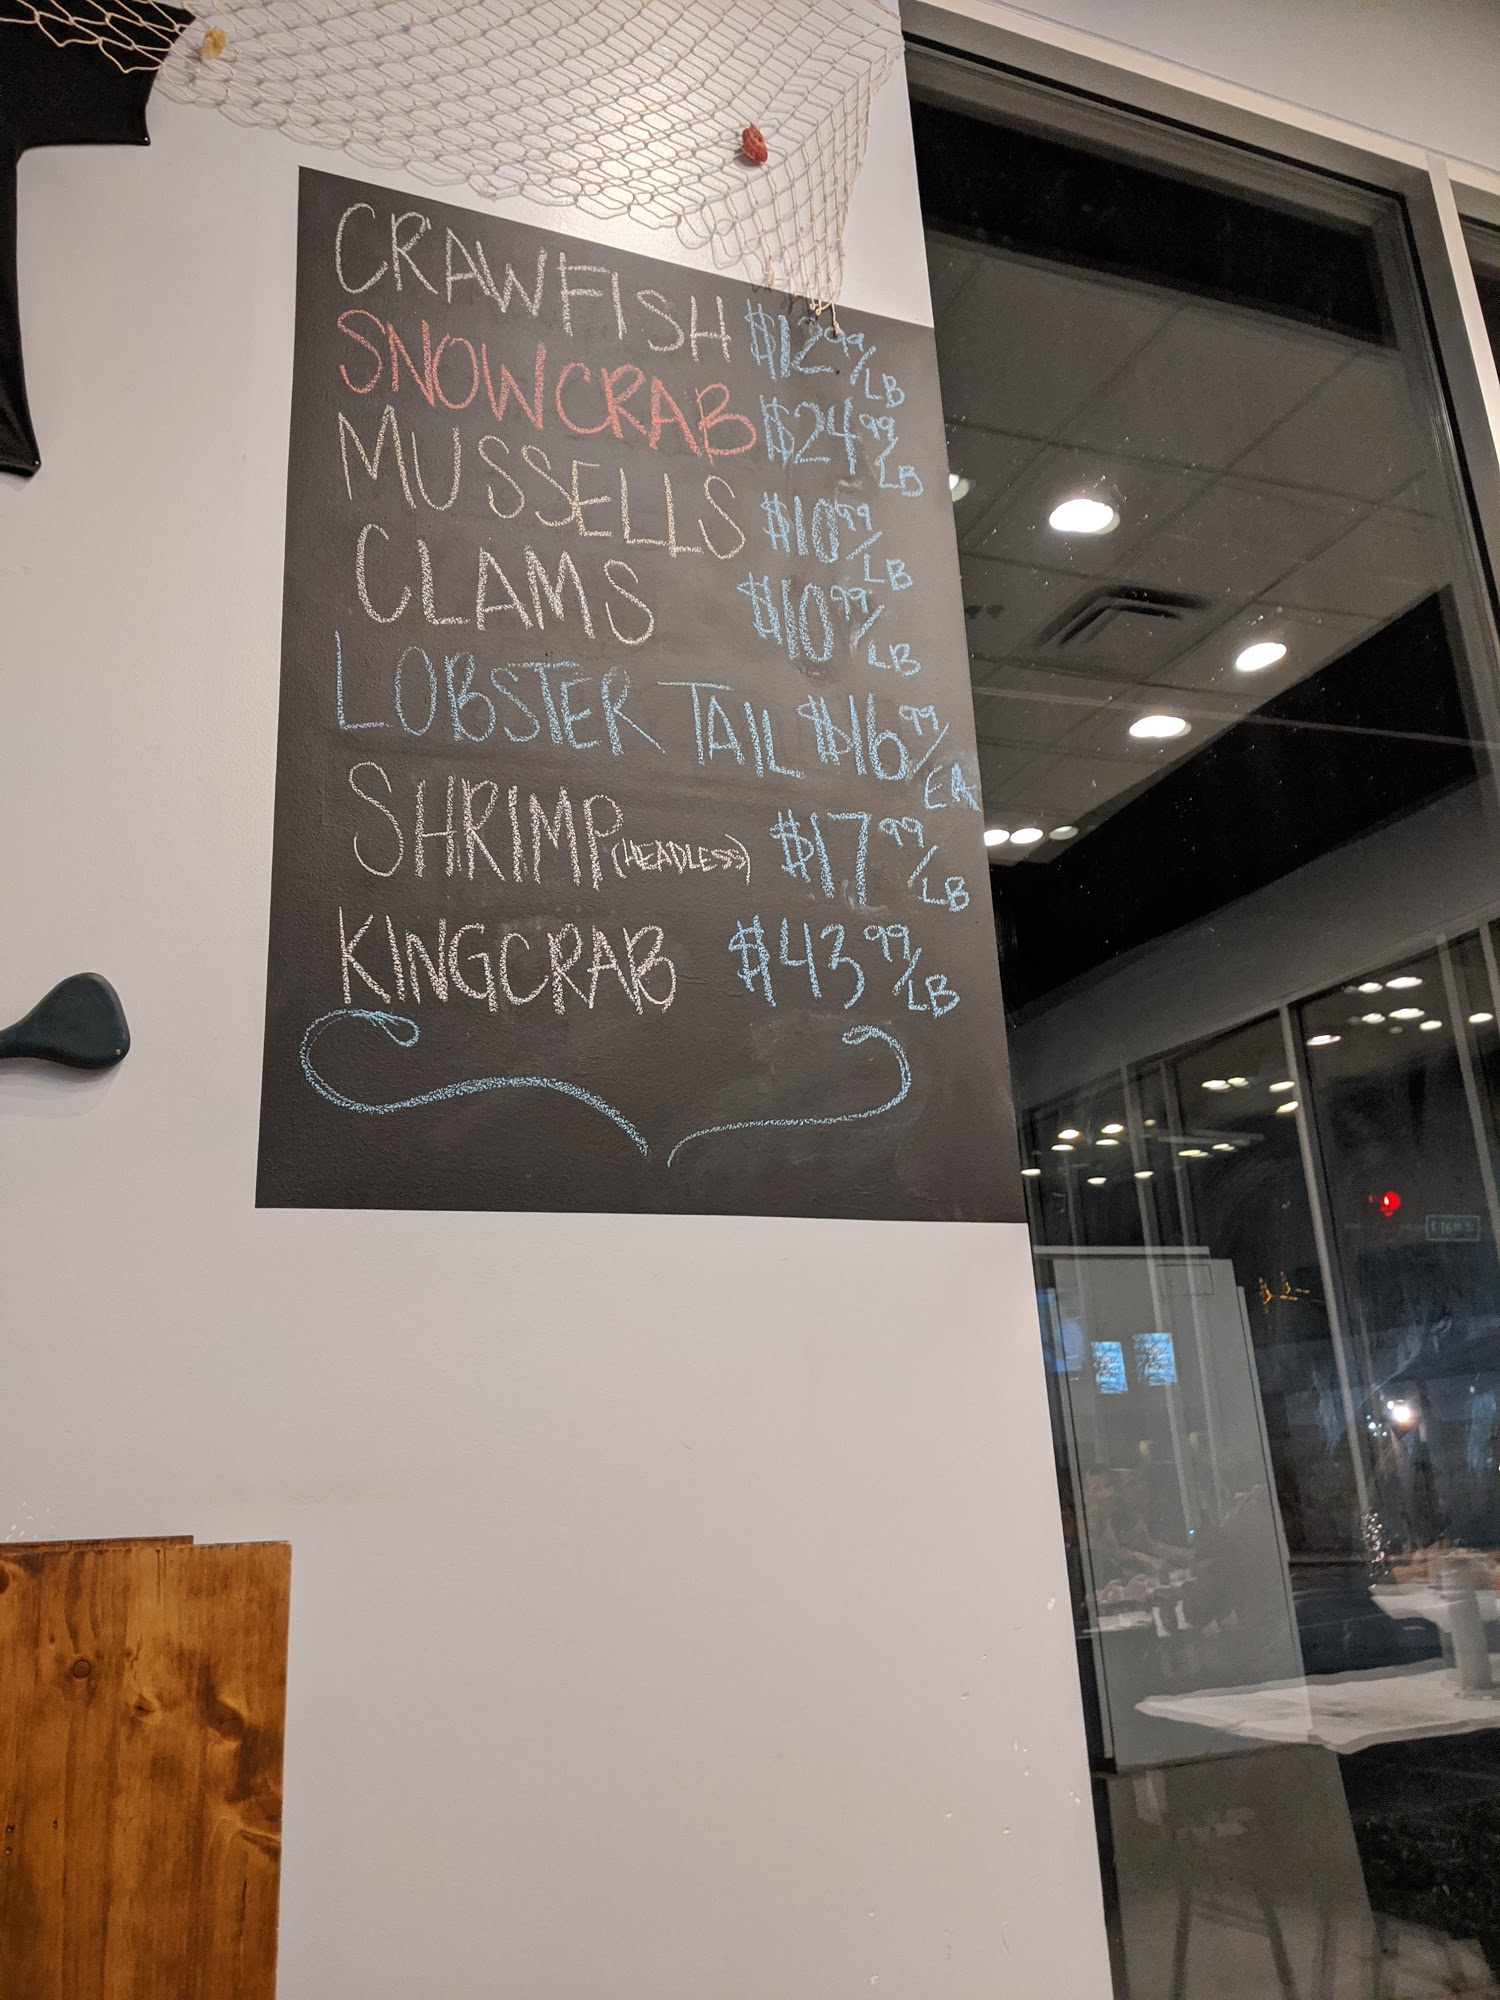 CRAWFISH $12.99/LB
SNOWCRAB $24.99/LB
MUSSELLS $10.99/LB
CLAMS $10.99/LB
LOBSTER TAIL $16.99/EA
SHRIMP (HEADLESS) $17.99/LB
KINGCRAB $43.99/LB